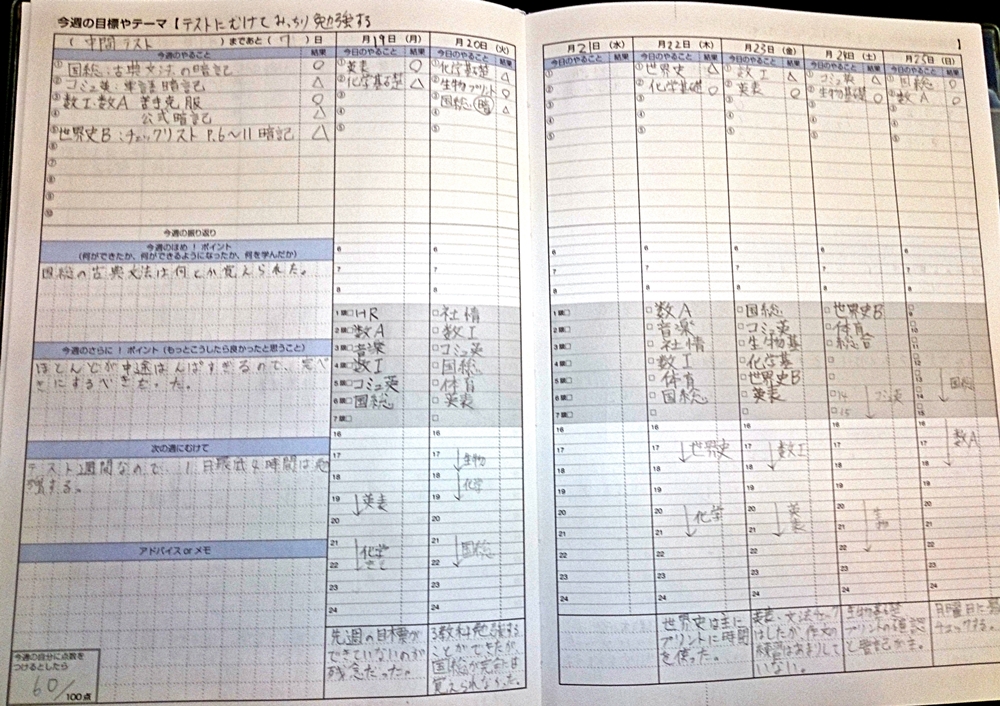 今週の目標やテーマ【テストにむけてみっちり勉強する
】
( 中間テスト )まであと( 7 )日
今週のやること 結果
① 国総:古典文法の暗記 ○
② コミュ英:単語暗記 △
③ 数Ⅰ・数A 苦手克服 ○
④ 公式暗記 △
⑤ 世界史B:チェックリスト P.6〜11暗記 △
⑥
⑦
⑧
⑨
⑩
今週の振り返り
今週のほめ!ポイント
(何ができたか、何ができるようになったか、何を学んだか)
国総の古典文法は何とか覚えられた。
今週のさらに!ポイント(もっとこうしたら良かったと思うこと)
ほとんどが中途はんぱすぎるので、完ぺ
きにするべきだった。
次の週にむけて
テスト1週間なので、1日最低4時間は勉
強する。
アドバイス or メモ
今週の自分に点数を
つけるとしたら
60/100点
月19日(月)
今日のやること 結果
① 英表 ○
② 化学基礎 △
③
④
⑤
6
7
8
1限□HR
2限□数A
3限□音楽
4限□数Ⅰ
5限□コミュ英
6限□国総
7限□
16
17
18
19
英表
20
21
化学
22
23
24
先週の目標が
できていないのが
残念だった。
月20日(火)
今日のやること 結果
① 化学基礎 △
② 生物プリント ○
③ 国総(暗) △
④
⑤
6
7
8
□社情
□数Ⅰ
□コミュ英
□国総
□体育
□英表
□
16
17
生物
18
化学
19
20
21
国総
22
23
24
3教科勉強する
ことができたが、
国総が完全には
覚えられなかった。
月21日(水)
今日のやること 結果
①
②
③
④
⑤
6
7
8
1限□
2限□
3限□
4限□
5限□
6限□
7限□
16
17
18
19
20
21
22
23
24
月22日(木)
今日のやること 結果
① 世界史 △
② 化学基礎 ○
③
④
⑤
6
7
8
□数A
□音楽
□社情
□数Ⅰ
□体育
□国総
□
16
17
世界史
18
19
20
化学
21
22
23
24
世界史は主に
プリントに時間
を使った。
月23日(金)
今日のやること 結果
① 数Ⅰ △
② 英表 ○
③
④
⑤
6
7
8
□国総
□コミュ英
□生物基
□化学基
□世界史B
□英表
□
16
17
数Ⅰ
18
19
20
英表
21
22
23
24
英表、文法チェック
はしたが、作文の
練習はあまりして
いない。
月24日(土)
今日のやること 結果
① コミュ英 △
② 生物基礎 ○
③
④
⑤
6
7
8
□世界史B
□体育
□総合
□
□
□14 コミュ英
□15
16
17
18
19
20
生物
21
22
23
24
生物基礎
プリントの確認
と暗記がま。
月25日(日)
今日のやること 結果
① 国総 ○
② 数A ○
③
④
⑤
6
7
8
9
10
11
12
13
国総
14
15
16
数A
17
18
19
20
21
22
23
24
月曜日に
チェックする。